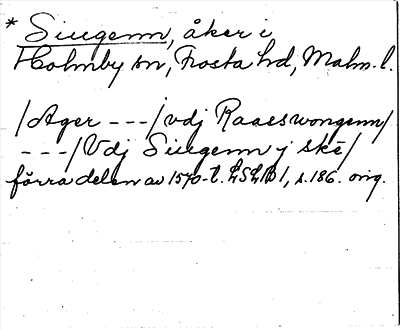 * Siugenn, åker i
Holmby sn, Frosta hd, Malm. l.
/Ager ---/ vdj Raaeswongenn/
---/ Vdj Siugenn j ske/
förra delen av 1570-t. LSLB 1, s. 186. orig.